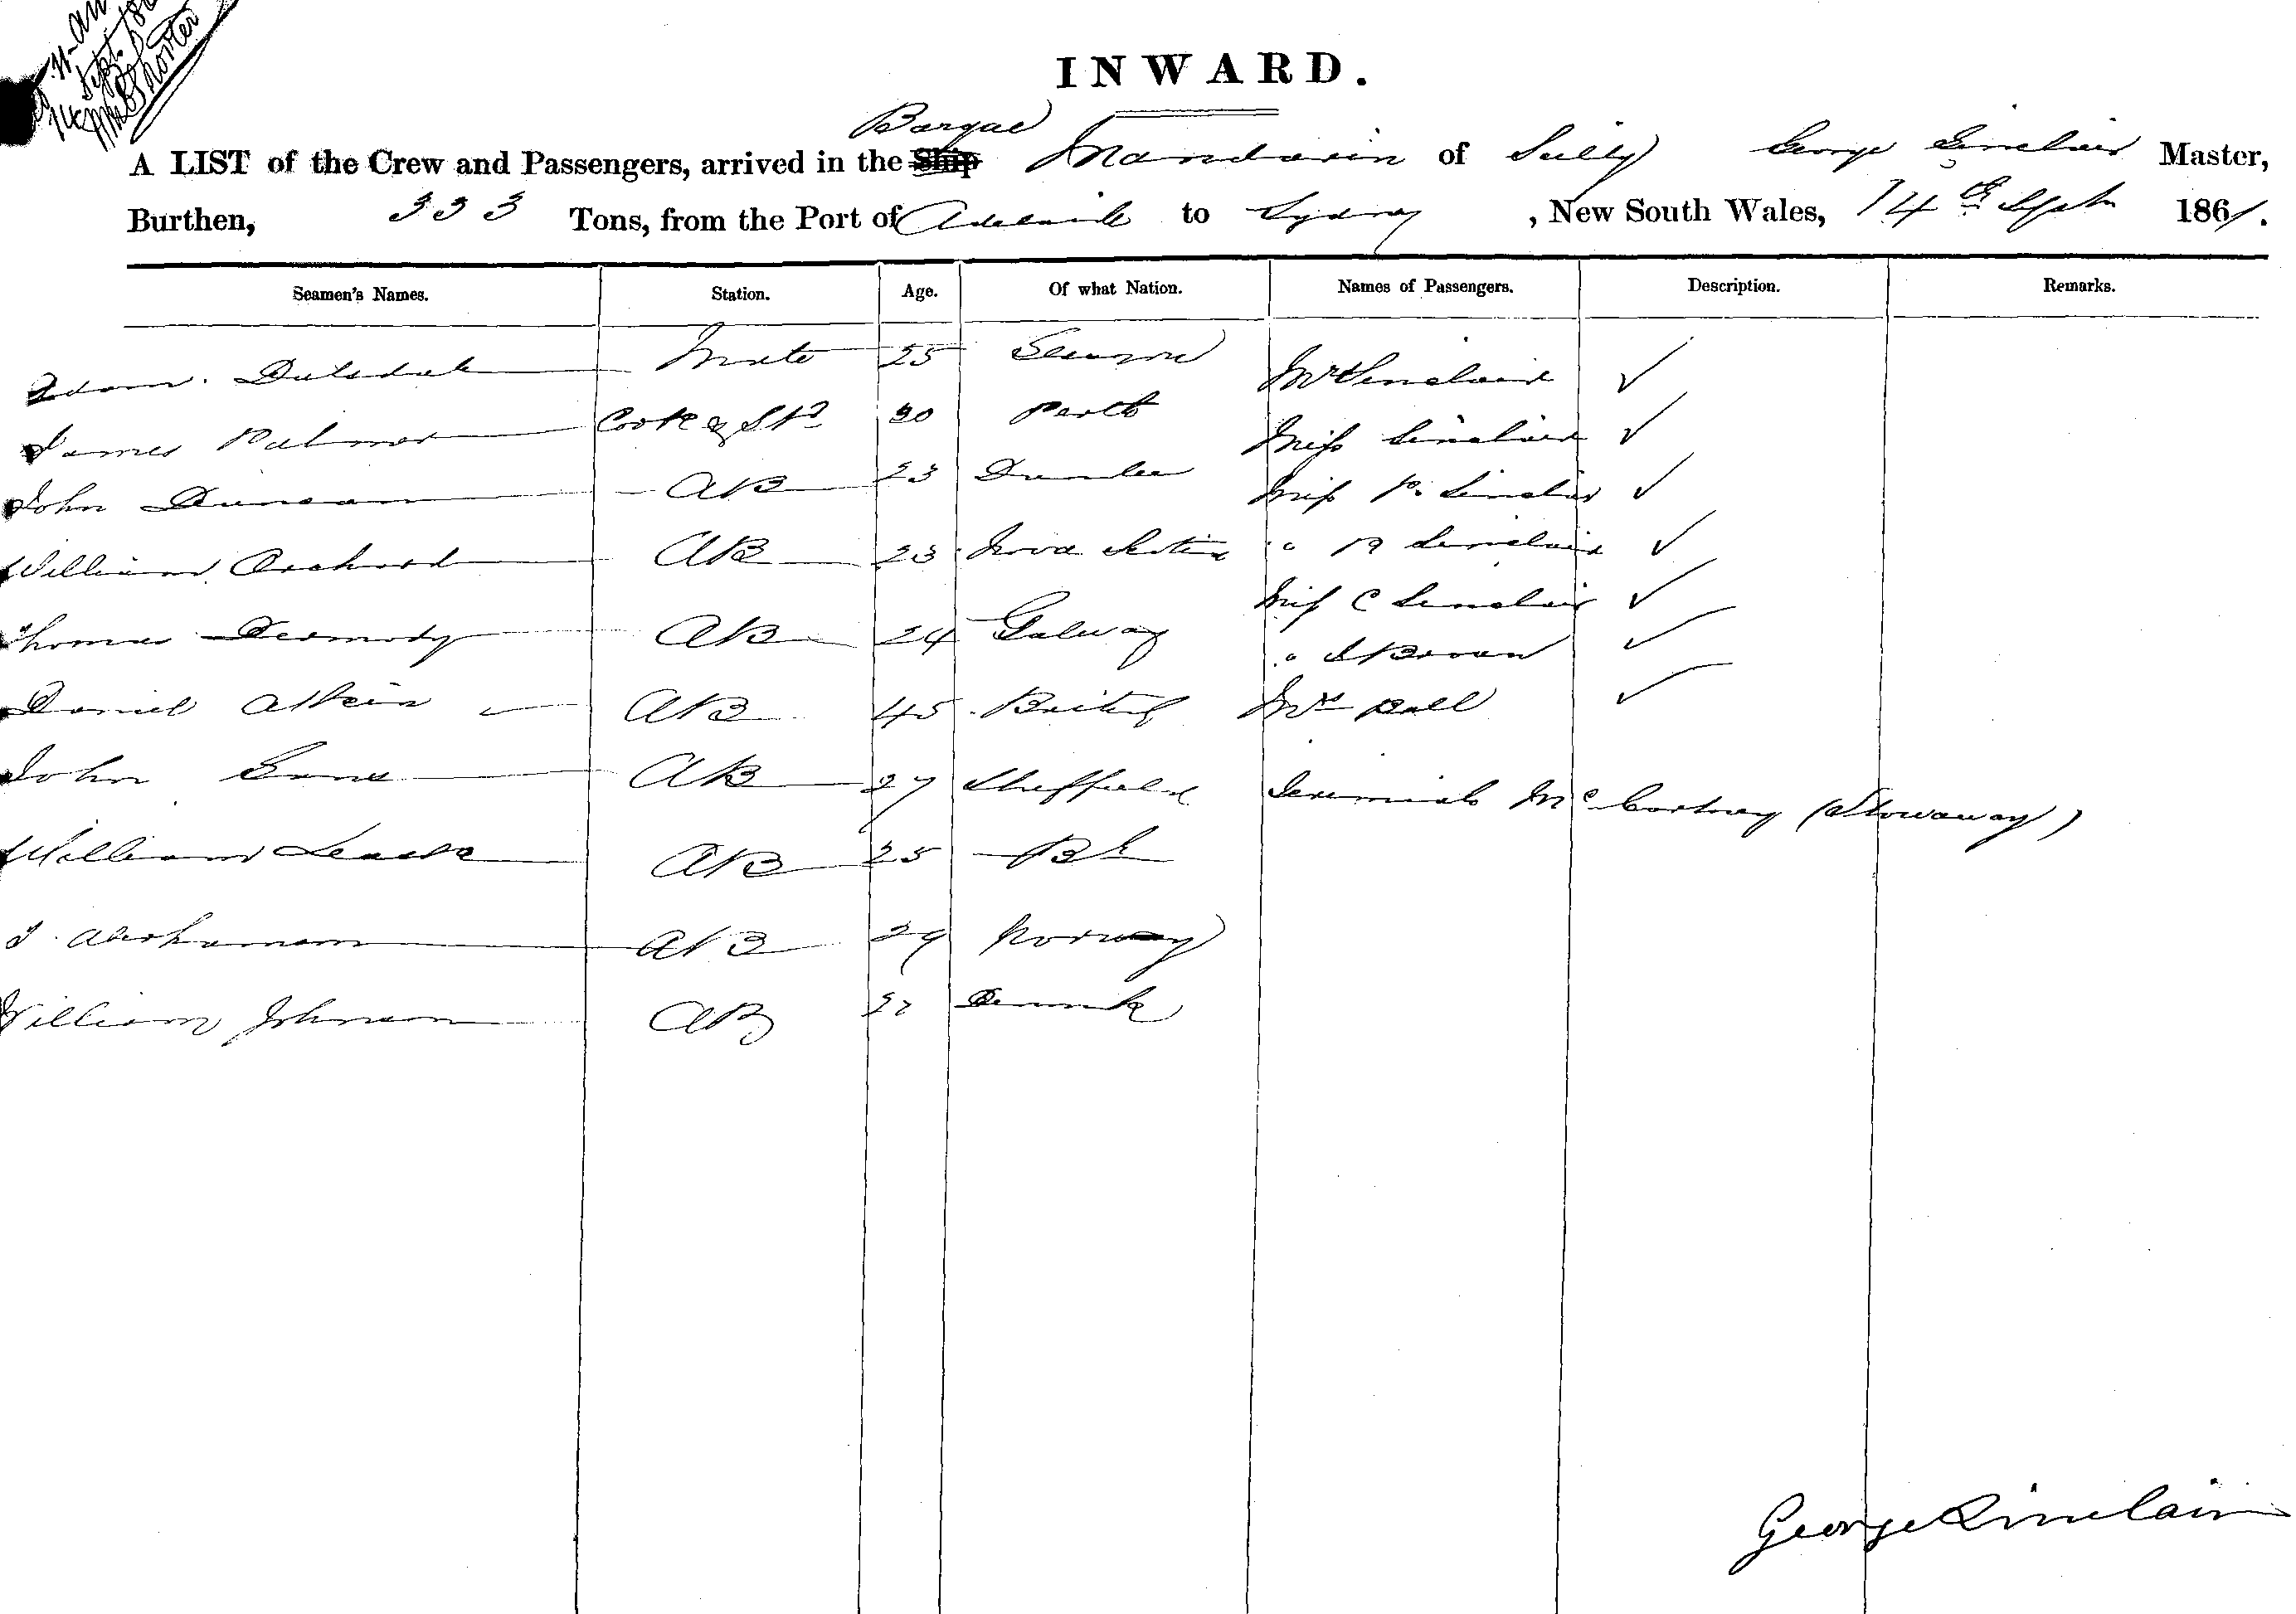 Sept.
14
INWARD.
Barque
A LIST of the Crew and Passengers, arrived in the Ship Mandarin of Scilly George Sinclair Master,
Burthen, 333 Tons, from the Port of Adelaide to Sydney, New South Wales, 14th Sept 1861.
Seamen's Names. Station. Age. Of what Nation. Names of Passengers. Description. Remarks.
Adam Mate 25 Mrs Sinclair ✓
James Palmer Cook & Std 30 Perth Miss Sinclair ✓
John Duncan AB 23 Dundee Miss P. Sinclair ✓
William Orchard AB 23 Nova Scotia " R Sinclair ✓
Miss C Sinclair ✓
Thomas Dermody AB 24 Galway " Brown ✓
Daniel Atkin AB 45 British Mrs Ball ✓
John AB 27 Sheffield Jeremiah McCartney (Stowaway)
William AB 25
Abrahamson AB 29 Norway
William Johnson AB 27 Denmk
George Sinclair